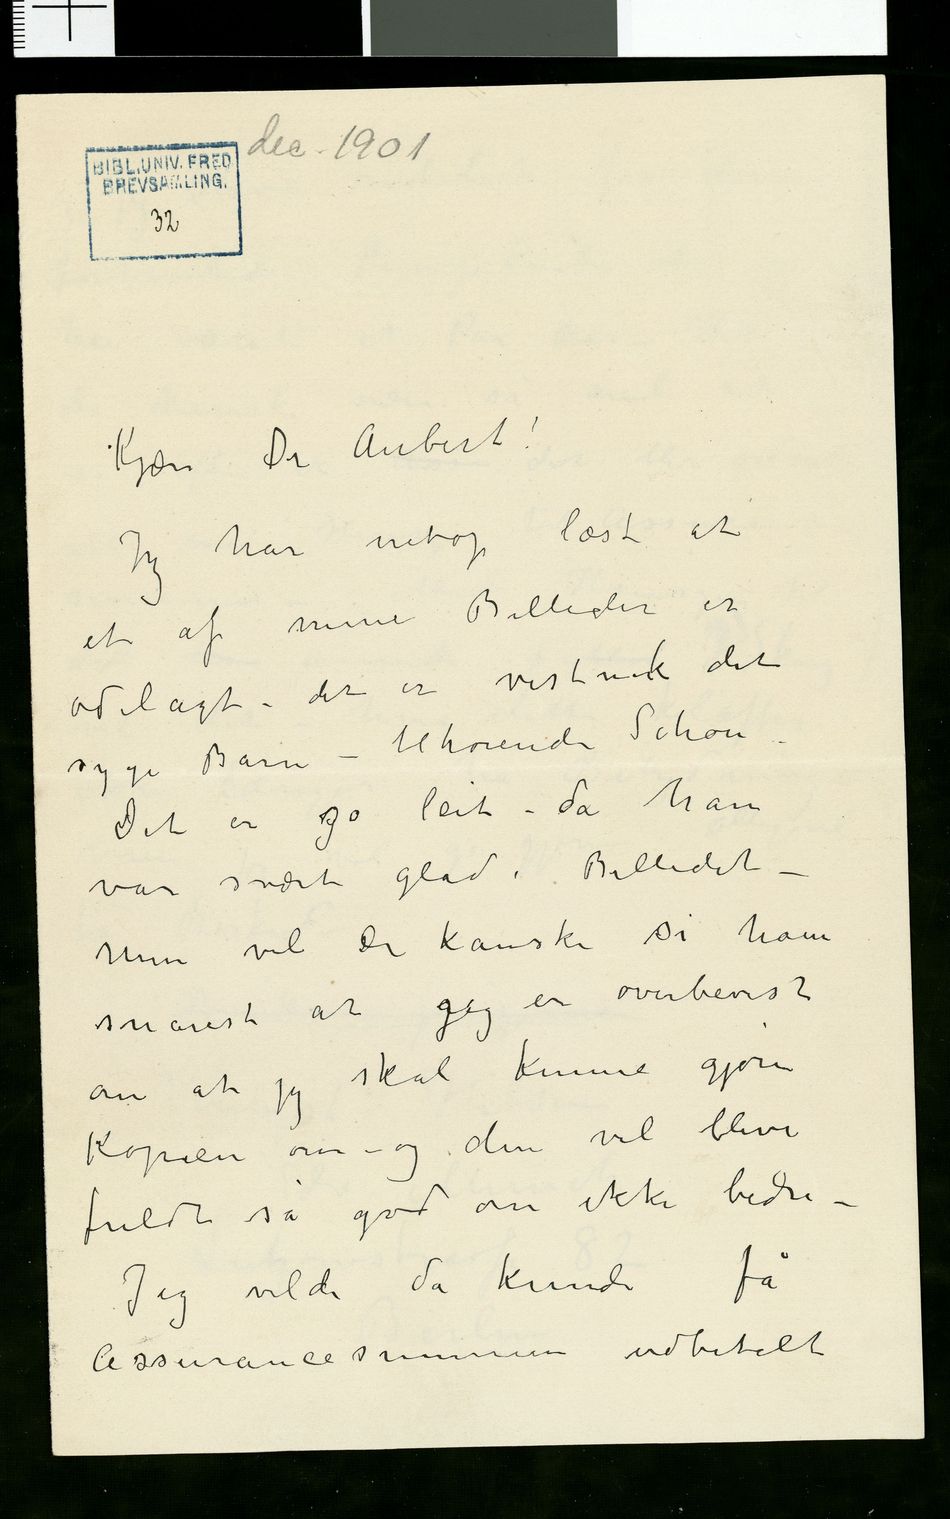 dec. 1901
BIBL. UNIV. FRED
BREVSAMLING.
32
Kjære Dr Aubert!
Jeg har netop læst at
et af mine Billeder er
ødelagt – det er vist nok det
syge Barn – tilhørende Schou –
Det er jo leit – da han
var svært glad i Billedet –
Men vil De kanske si ham
snarest at jeg er overbevist
om at jeg skal kunne gjøre
Kopien om – og den vil blive
fuldt så god om ikke bedre –
Jeg vilde da kunde få
Assurancesummen udbetalt